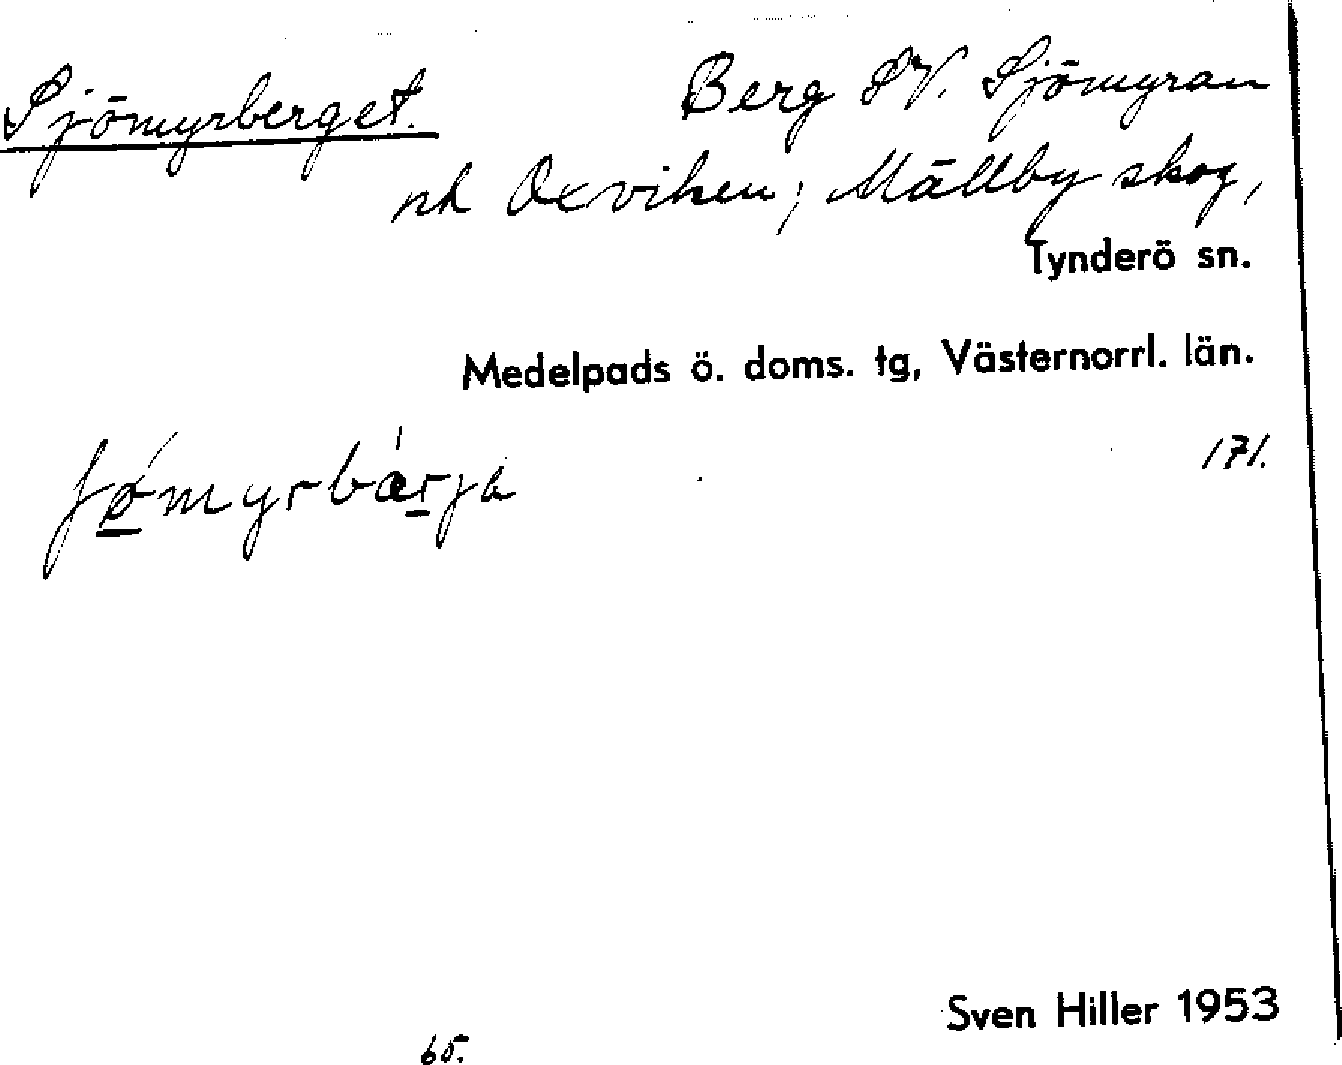 Sjömyrberget. Berg SV. Sjömyran
nh Oxviken; Mällby skog,
Tynderö sn.
Medelpads ö. doms. tg, Västernorrl. län.
171.
ʃǿ̱myrbæṟja
Sven Hiller 1953
65.